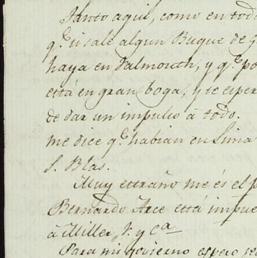 Tanto aqui, como en todo
q.e si sale algun Buque de G
haya en Falmouth, y q.e po
está en gran boga, y se esper
de dar un impulso á todo.
me dice q.e habian en Lima
S. Blas.
Muy estraño me és el p
Bernardo Arce está impue
á Miller, S. y ca
Para mi govierno espero se